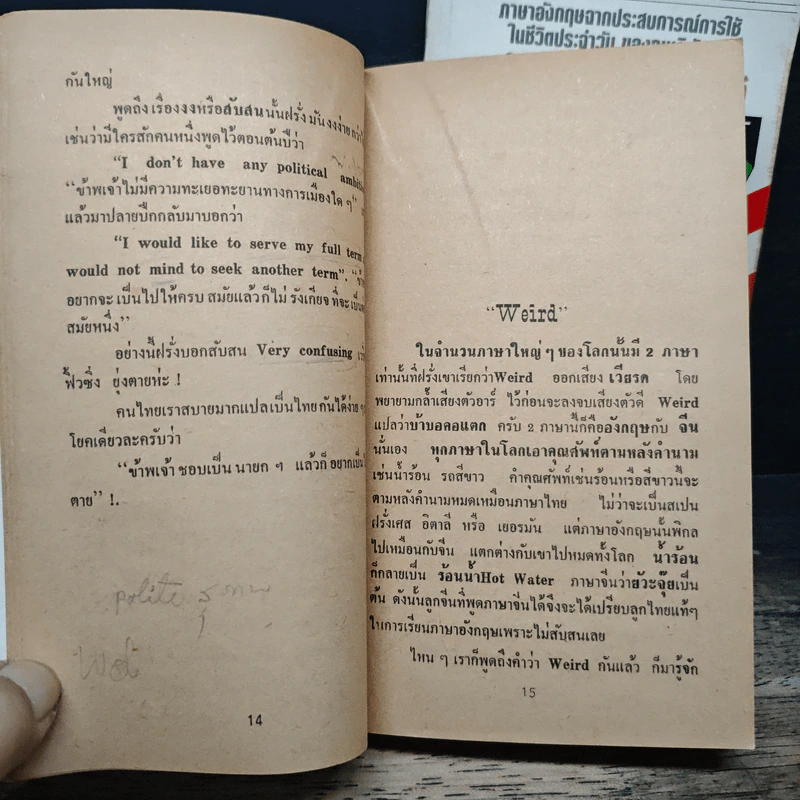 ภาษาอังกฤษจากประสบการณ์การใช้
ในชีวิตประจำวัน ของคน
กันใหญ่
พูดถึง เรื่องงงหรือสับสนนั้นฝรั่ง มันงงง่าย กว่า
เช่นว่ามีใครสักคนหนึ่งพูดไว้ตอนต้นปีว่า
"I don't have any political
"ข้าพเจ้าไม่มีความทะเยอทะยานทางการเมืองใด ๆ"
แล้วมาปลายปีกลับมาบอกว่า
"I would like to serve my full term
would not mind to seek another term".
อยากจะ เป็นไปให้ครบ สมัยแล้วก็ไม่ รังเกียจ ที่จะ
สมัยหนึ่ง"
อย่างนี้ฝรั่งบอกสับสน Very confusing
ฟิ้วซิ่ง ยุ่งตายห่ะ !
คนไทยเราสบายมากแปลเป็นไทย กันได้ง่าย ๆ
โยคเดียวละครับว่า
"ข้าพเจ้า ชอบเป็น นายก ๆ แล้วก็ อยากเป็น
ตาย" !.
polite
14
"Weird"
ในจำนวนภาษาใหญ่ ๆ ของโลกนั้นมี 2 ภาษา
เท่านั้นที่ฝรั่งเขาเรียกว่าWeird ออกเสียง เวียรด โดย
พยายามกล้ำเสียงตัวอาร์ ไว้ก่อนจะลงจบเสียงตัวดี Weird
แปลว่าบ้าบอคอแตก ครับ 2 ภาษานี้ก็คืออังกฤษกับ จีน
นั่นเอง ทุกภาษาในโลกเอาคุณศัพท์ตามหลังคำนาม
เช่นน้ำร้อน รถสีขาว คำคุณศัพท์เช่นร้อนหรือสีขาวนี้จะ
ตามหลังคำนามหมดเหมือนภาษาไทย ไม่ว่าจะเป็นสเปน
ฝรั่งเศส อิตาลี หรือ เยอรมัน แต่ภาษาอังกฤษนั้นพิกล
ไปเหมือนกับจีน แตกต่างกับเขาไปหมดทั้งโลก น้ำร้อน
ก็กลายเป็น ร้อนน้ำHot Water ภาษาจีนว่ายัวะจุ๊ยเป็น
ต้น ดังนั้นลูกจีนที่พูดภาษาจีนได้จึงจะได้เปรียบลูกไทยแท้ๆ
ในการเรียนภาษาอังกฤษเพราะไม่สับสนเลย
ไหน ๆ เราก็พูดถึงคำว่า Weird กันแล้ว ก็มารู้จัก
15